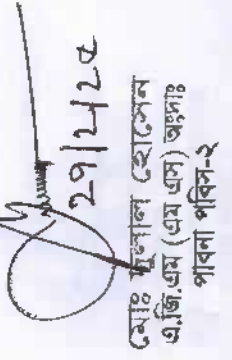 মোঃ দুলাল হোসেন
এ.জি.এম (এম এস) অঃদাঃ
পাবনা পবিস-২